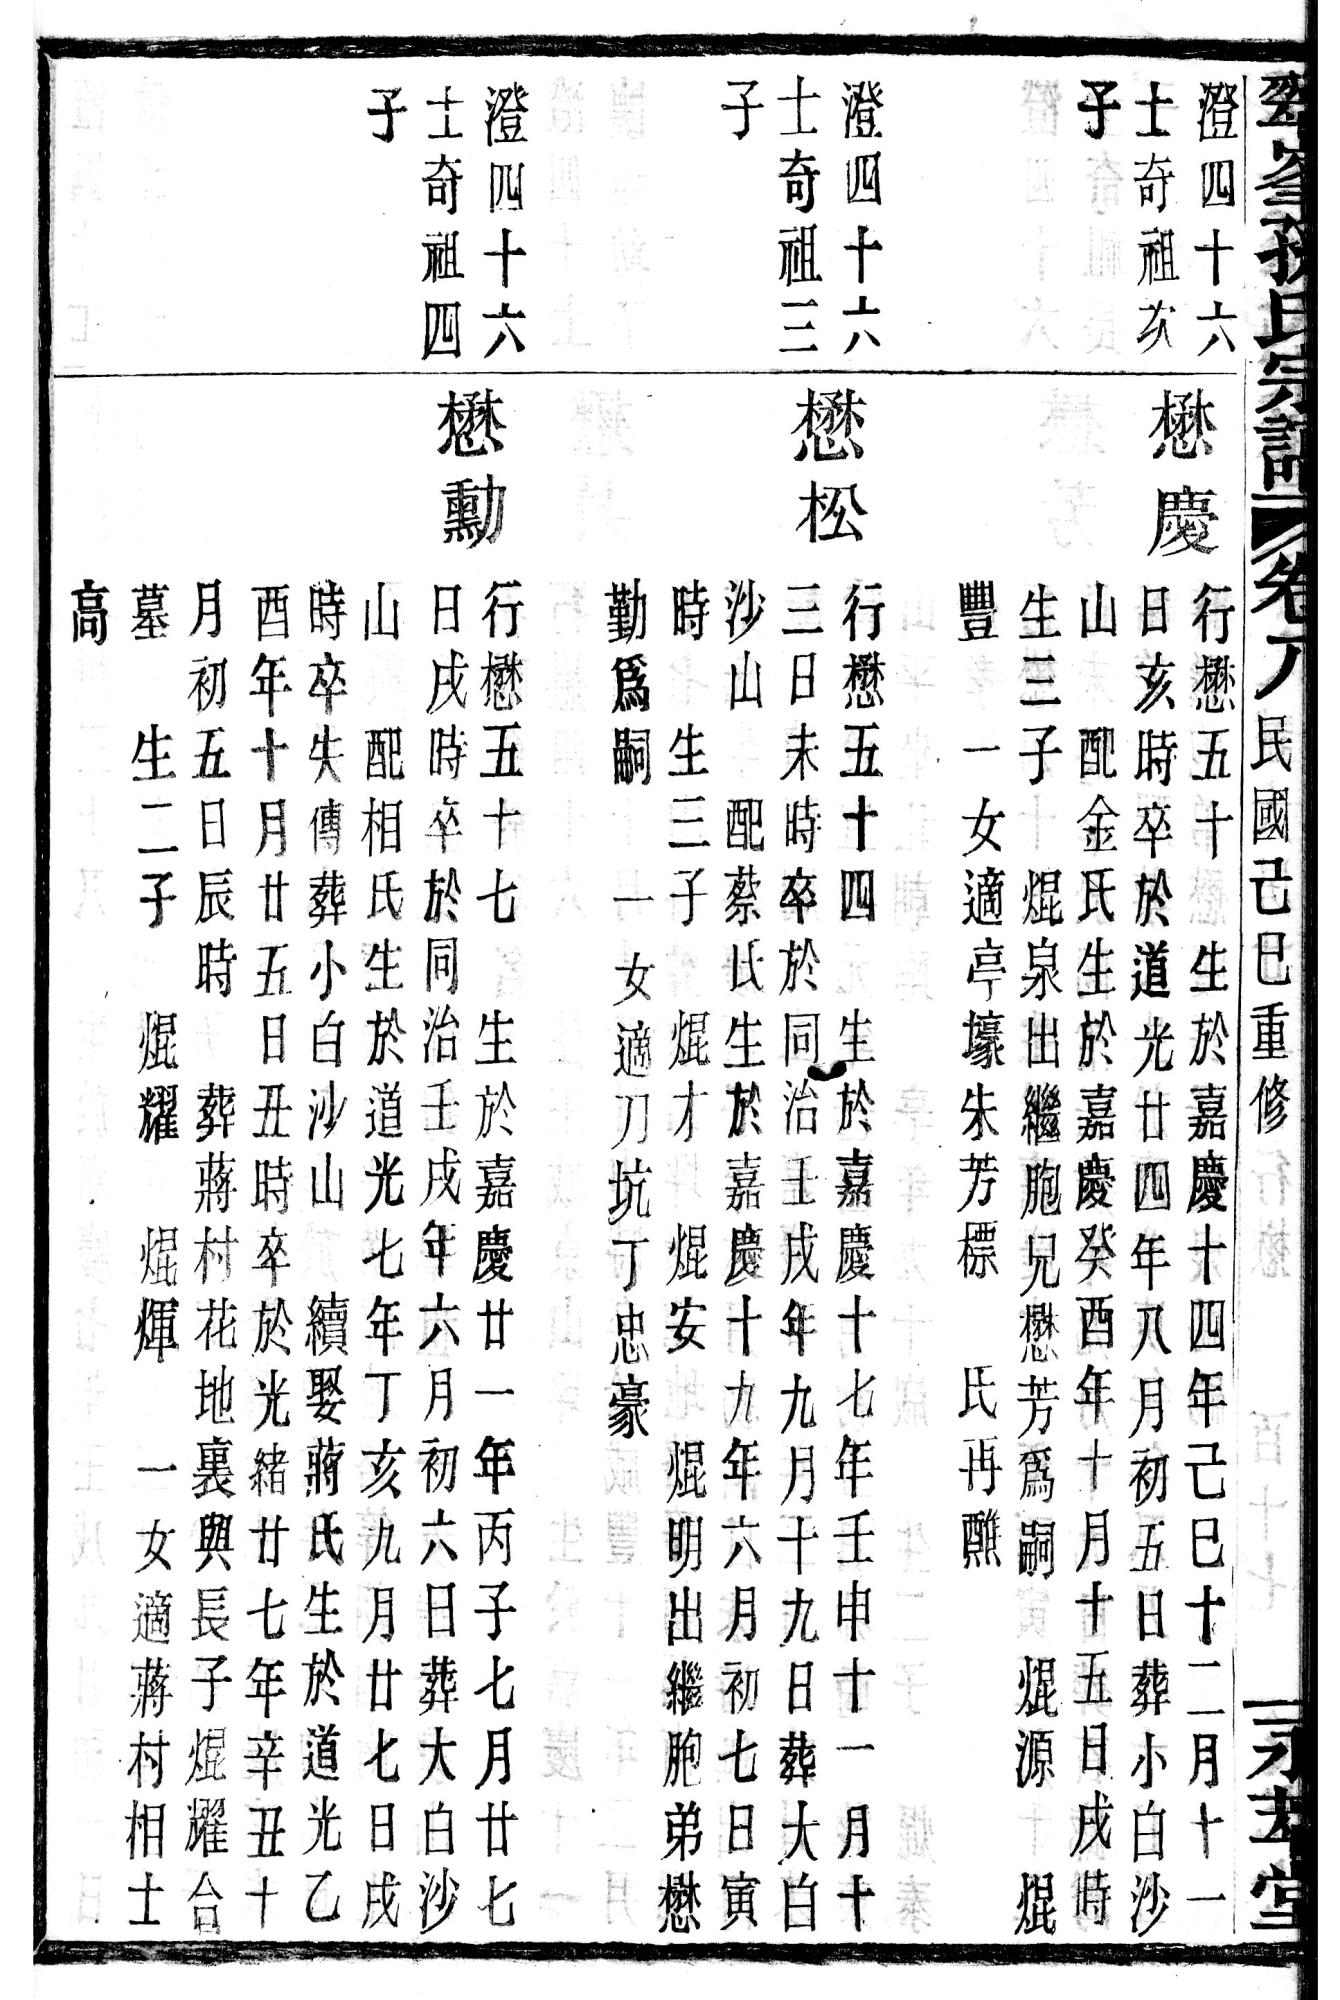 孫氏宗譜 卷八 民國己巳重修 永萃堂
澄四十六
士奇祖次
子
懋慶
行懋五十 生於嘉慶十四年己巳十二月十一
日亥時卒於道光廿四年八月初五日葬小白沙
山 配金氏生於嘉慶癸酉年十月十五日戌時
生三子 焜泉出繼胞兄懋芳爲嗣 焜源 焜
豐 一女適亭壕朱芳標 氏再醮
澄四十六
士奇祖三
子
懋松
行懋五十四 生於嘉慶十七年壬申十一月十
三日未時卒於同治壬戌年九月十九日葬大白
沙山 配蔡氏生於嘉慶十九年六月初七日寅
時 生三子 焜才 焜安 焜明出繼胞弟懋
勤爲嗣 一女適刀坑丁忠豪
澄四十六
士奇祖四
子
懋勳
行懋五十七 生於嘉慶廿一年丙子七月廿七
日戌時卒於同治壬戌年六月初六日葬大白沙
山 配相氏生於道光七年丁亥九月廿七日戌
時卒失傳葬小白沙山 續娶蔣氏生於道光乙
酉年十月廿五日丑時卒於光緒廿七年辛丑十
月初五日辰時 葬蔣村花地裏與長子焜耀合
墓 生二子 焜耀 焜煇 一女適蔣村相士
高